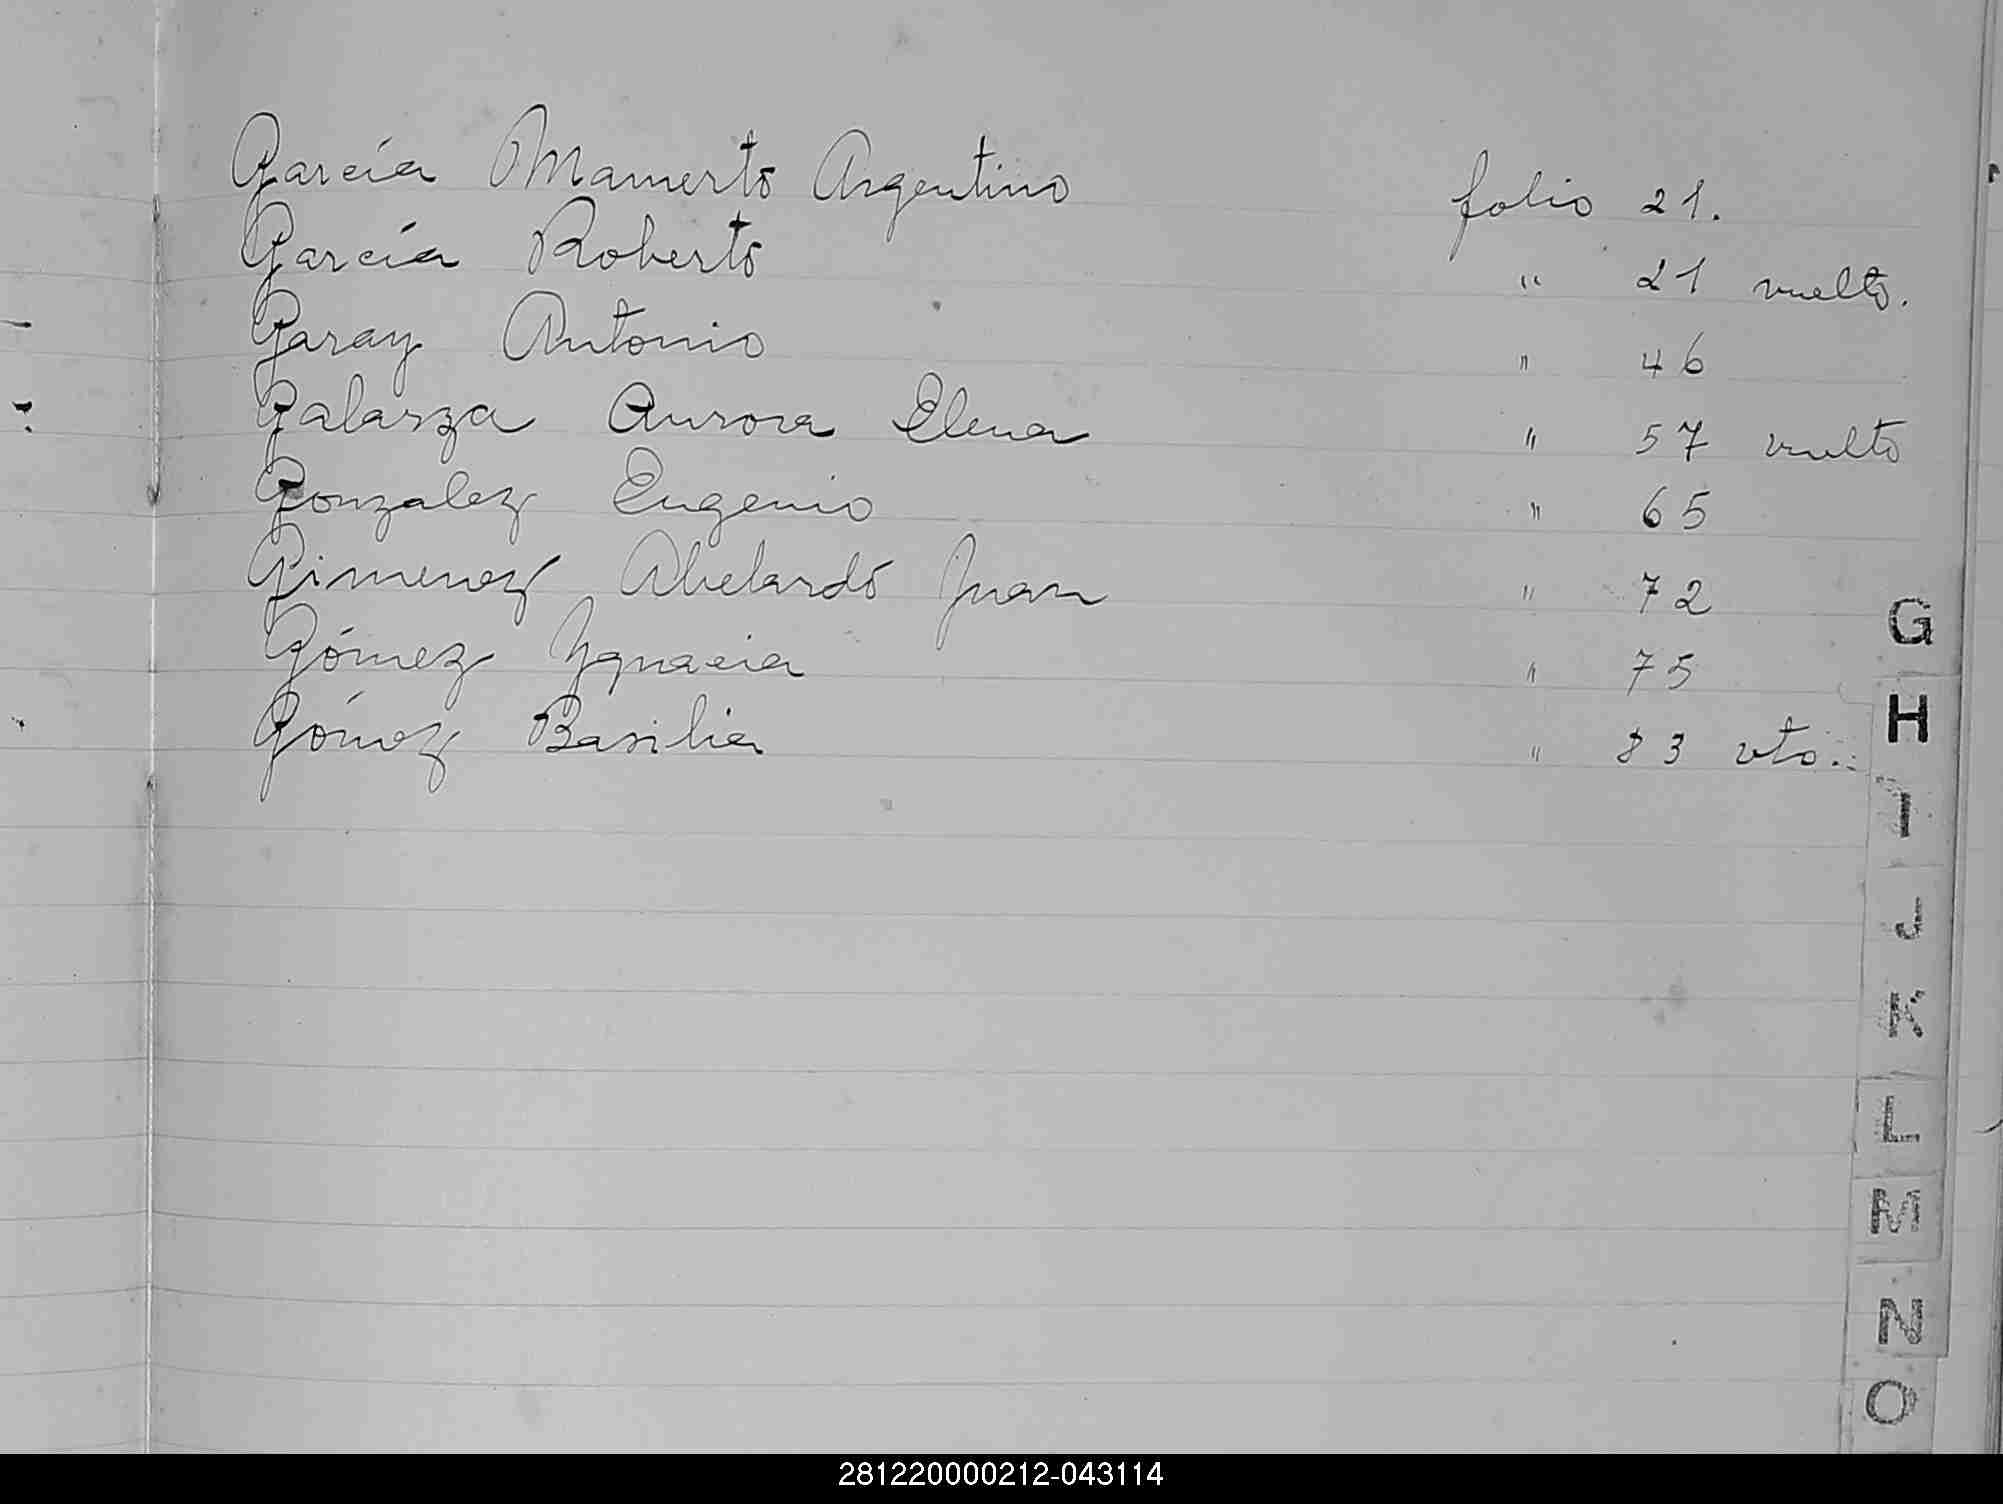 García Mamerto Argentino folio 21.
García Roberto " 21 vuelto.
Garay Antonio " 46
Galarza Aurora Elena " 57 vuelto
Gonzalez Eugenio " 65
Gimenez Abelardo Juan " 72
Gómez Ygnacia " 75
Gómez Basilia " 83 vto.
G
H
I
J
K
L
M
N
O
281220000212-043114